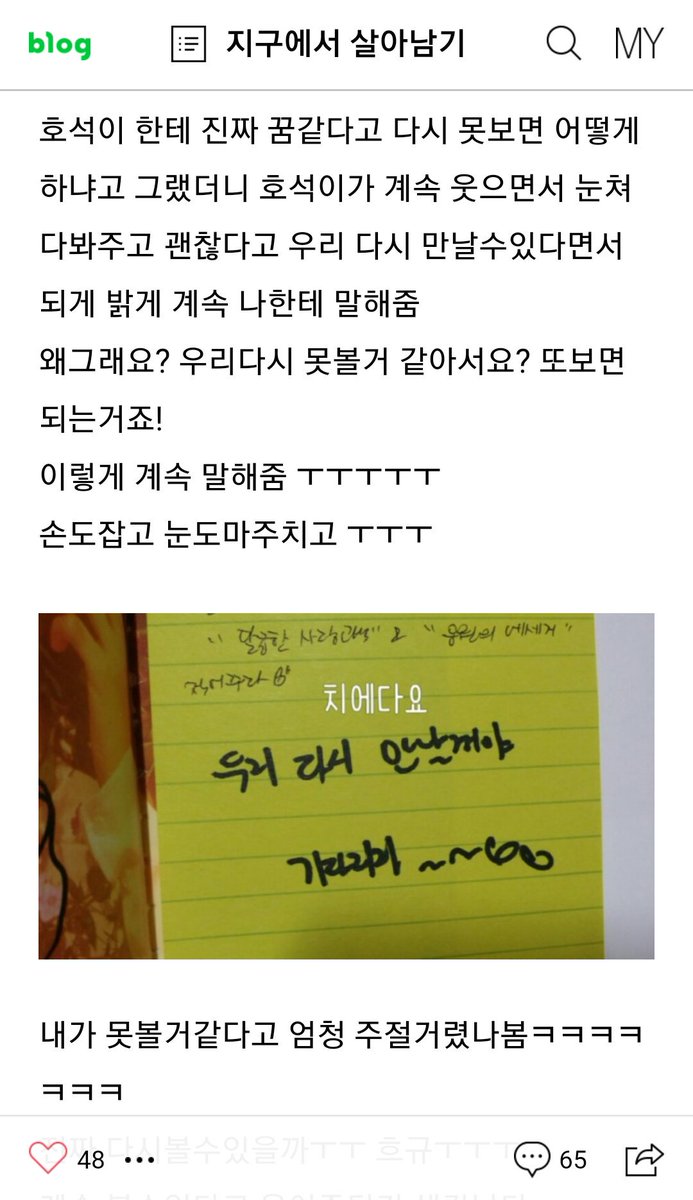 blog
지구에서 살아남기
MY
호석이 한테 진짜 꿈같다고 다시 못보면 어떻게
하냐고 그랬더니 호석이가 계속 웃으면서 눈쳐
다봐주고 괜찮다고 우리 다시 만날수있다면서
되게 밝게 계속 나한테 말해줌
왜그래요? 우리다시 못볼거 같아서요? 또보면
되는거죠!
이렇게 계속 말해줌 ㅜㅜㅜㅜㅜ
손도잡고 눈도마주치고 ㅜㅜㅜ
"달콤한 사랑고백" 과 "응원의 메세지"
적어주라
치에다요
우리 다시 만날꺼야
~~
내가 못볼거같다고 엄청 주절거렸나봄ㅋㅋㅋㅋ
ㅋㅋㅋ
진짜 다시볼수있을까ㅜㅜ 흐규ㅜㅜㅜ
48
65